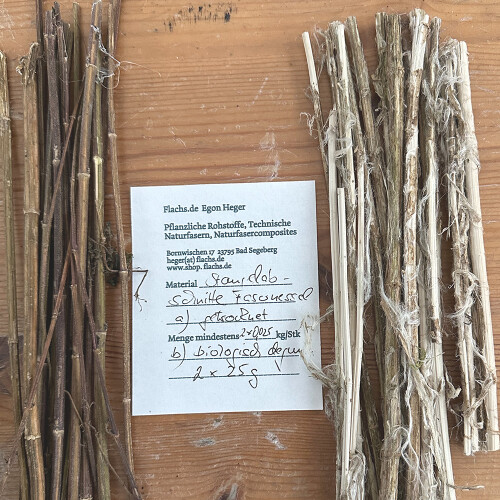 Flachs.de Egon Heger
Pflanzliche Rohstoffe, Technische
Naturfasern, Naturfasercomposites
Bornwischen 17 23795 Bad Segeberg
heger(at)flachs.de
www.shop.flachs.de
Material Stängelab-
schnitte Fasernessel
a) getrocknet
Menge mindestens 2x0,025 kg/Stk
b) biologisch degum
2 x 25g